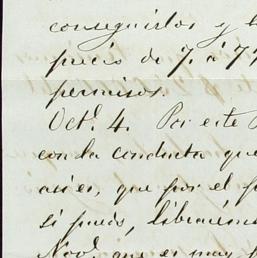 conseguirlos y l
precio de 7. á 7
permisos.
Octe. 4. Por este
con la conducta que
asi es, que por el p
si puedo,
Nove. que es muy